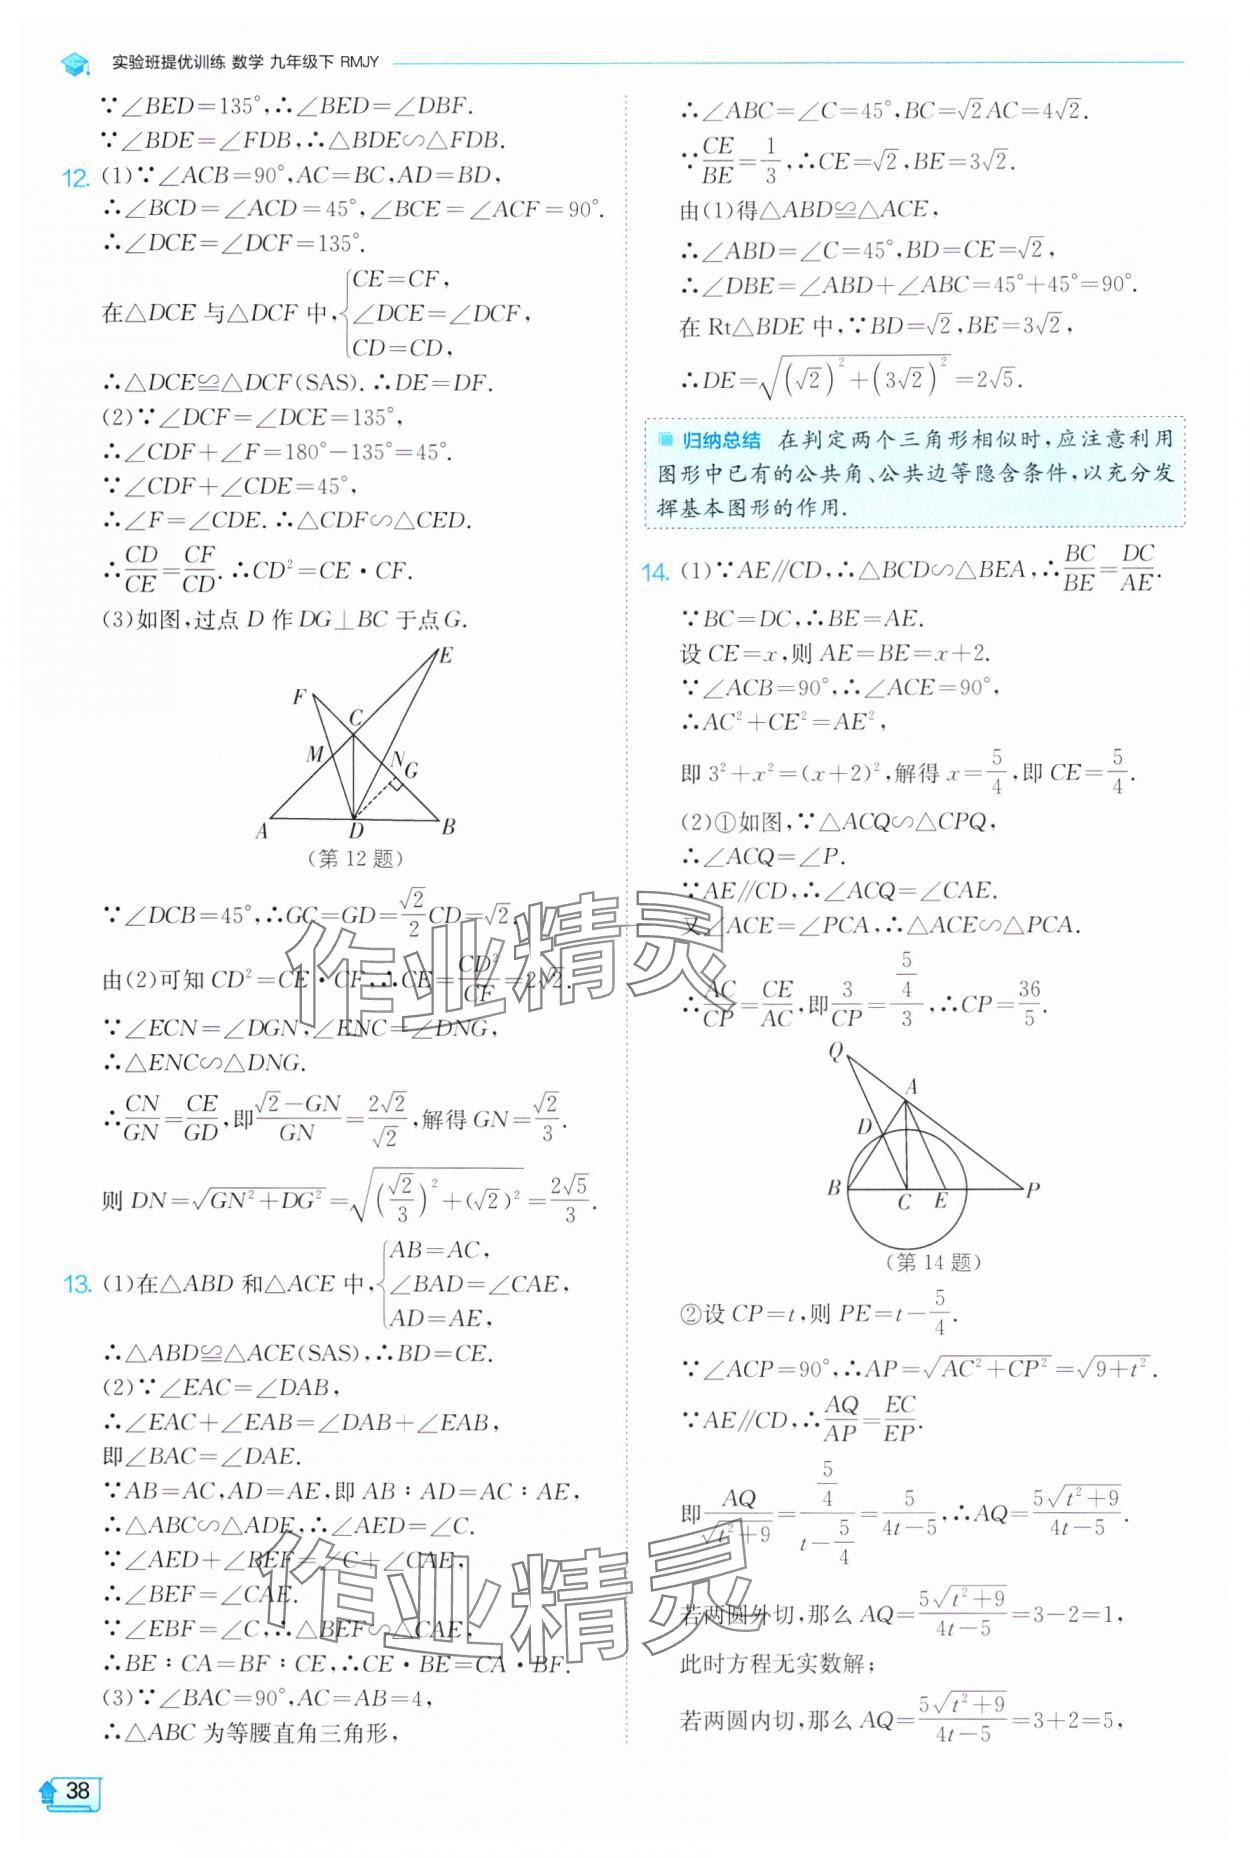 实验班提优训练 数学 九年级下 RMJY
∵∠BED=135°,∴∠BED=∠DBF.
∵∠BDE=∠FDB,∴△BDE∽△FDB.
12. (1)∵∠ACB=90°,AC=BC,AD=BD,
∴∠BCD=∠ACD=45°,∠BCE=∠ACF=90°.
∴∠DCE=∠DCF=135°.
在△DCE与△DCF中,{CE=CF,
∠DCE=∠DCF,
CD=CD,
∴△DCE≌△DCF(SAS).∴DE=DF.
(2)∵∠DCF=∠DCE=135°,
∴∠CDF+∠F=180°-135°=45°.
∵∠CDF+∠CDE=45°,
∴∠F=∠CDE.∴△CDF∽△CED.
∴CD/CE=CF/CD.∴CD²=CE·CF.
(3)如图,过点D作DG⊥BC于点G.
E
F
C
M
N
G
A
D
B
(第12题)
∵∠DCB=45°,∴GC=GD=√2/2CD=√2,
由(2)可知CD²=CE·CF,∴CE=CD²/CF=2√2.
∵∠ECN=∠DGN,∠ENC=∠DNG,
∴△ENC∽△DNG.
∴CN/GN=CE/GD,即(√2-GN)/GN=2√2/√2,解得GN=√2/3.
则DN=√(GN²+DG²)=√((√2/3)²+(√2)²)=2√5/3.
13. (1)在△ABD和△ACE中,{AB=AC,
∠BAD=∠CAE,
AD=AE,
∴△ABD≌△ACE(SAS),∴BD=CE.
(2)∵∠EAC=∠DAB,
∴∠EAC+∠EAB=∠DAB+∠EAB,
即∠BAC=∠DAE.
∵AB=AC,AD=AE,即AB:AD=AC:AE,
∴△ABC∽△ADE,∴∠AED=∠C.
∵∠AED+∠BEF=∠C+∠CAE,
∴∠BEF=∠CAE.
∵∠EBF=∠C,∴△BEF∽△CAE,
∴BE:CA=BF:CE,∴CE·BE=CA·BF.
(3)∵∠BAC=90°,AC=AB=4,
∴△ABC为等腰直角三角形,
38
∴∠ABC=∠C=45°,BC=√2AC=4√2.
∵CE/BE=1/3,∴CE=√2,BE=3√2.
由(1)得△ABD≌△ACE,
∴∠ABD=∠C=45°,BD=CE=√2,
∴∠DBE=∠ABD+∠ABC=45°+45°=90°.
在Rt△BDE中,∵BD=√2,BE=3√2,
∴DE=√((√2)²+(3√2)²)=2√5.
归纳总结 在判定两个三角形相似时,应注意利用
图形中已有的公共角、公共边等隐含条件,以充分发
挥基本图形的作用.
14. (1)∵AE∥CD,∴△BCD∽△BEA,∴BC/BE=DC/AE.
∵BC=DC,∴BE=AE.
设CE=x,则AE=BE=x+2.
∵∠ACB=90°,∴∠ACE=90°,
∴AC²+CE²=AE²,
即3²+x²=(x+2)²,解得x=5/4,即CE=5/4.
(2)①如图,∵△ACQ∽△CPQ,
∴∠ACQ=∠P.
∵AE∥CD,∴∠ACQ=∠CAE.
又∠ACE=∠PCA,∴△ACE∽△PCA.
∴AC/CP=CE/AC,即3/CP=(5/4)/3,∴CP=36/5.
Q
A
D
B
C
E
P
(第14题)
②设CP=t,则PE=t-5/4.
∵∠ACP=90°,∴AP=√(AC²+CP²)=√(9+t²).
∵AE∥CD,∴AQ/AP=EC/EP.
即AQ/√(t²+9)=(5/4)/(t-5/4)=5/(4t-5),∴AQ=5√(t²+9)/(4t-5).
若两圆外切,那么AQ=5√(t²+9)/(4t-5)=3-2=1,
此时方程无实数解;
若两圆内切,那么AQ=5√(t²+9)/(4t-5)=3+2=5,
作业精灵
作业精灵